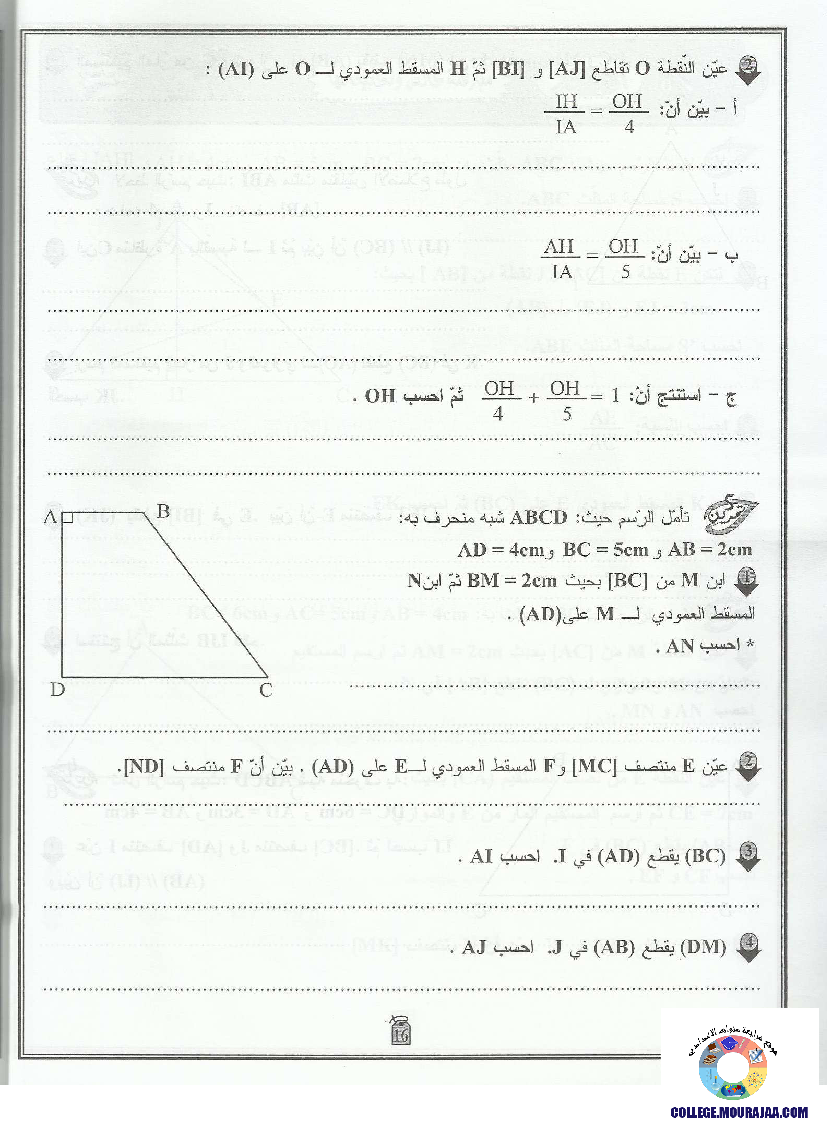 2 عيّن النّقطة O تقاطع [AJ] و [BI] ثمّ H المسقط العمودي لـ O على (AI) :
أ - بيّن أنّ: OH/4 = IH/IA
ب - بيّن أنّ: OH/5 = AH/IA
ج - استنتج أنّ: 1 = OH/5 + OH/4 ثمّ احسب OH .
تمرين 5 تأمّل الرّسم حيث: ABCD شبه منحرف به:
AB = 2cm و BC = 5cm و AD = 4cm
1 ابن M من [BC] بحيث BM = 2cm ثمّ ابن N
المسقط العمودي لـ M على (AD) .
* احسب AN .
A
B
D
C
2 عيّن E منتصف [MC] و F المسقط العمودي لـ E على (AD) . بيّن أنّ F منتصف [ND].
3 (BC) يقطع (AD) في I. احسب AI .
4 (DM) يقطع (AB) في J. احسب AJ .
16
موقع مراجعة
COLLEGE.MOURAJAA.COM